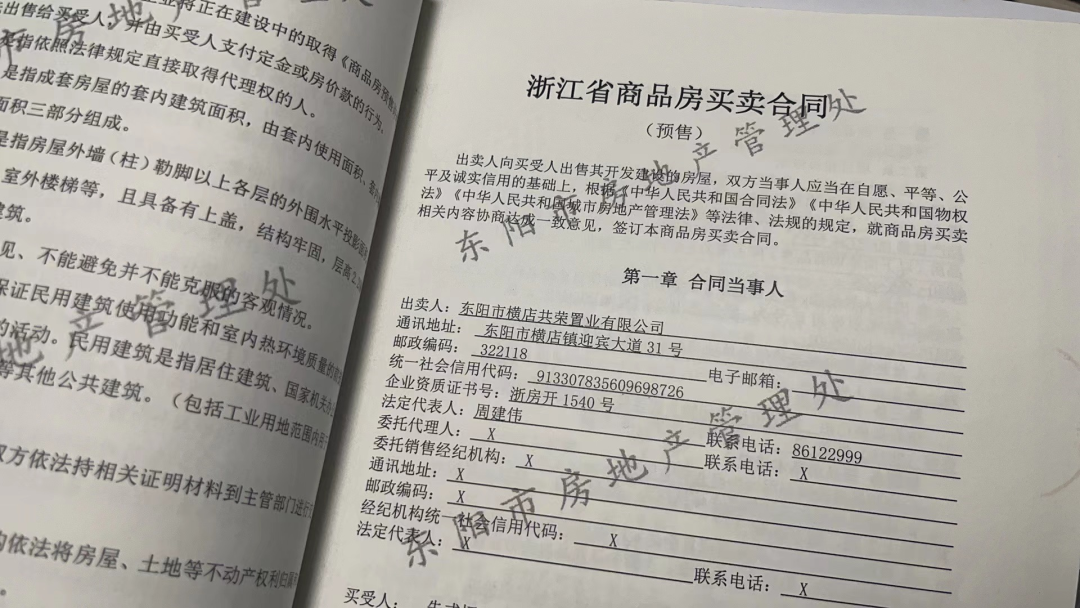 业将正在建设中的取得《商品房预售
出售给买受人，并由买受人支付定金或房价款的行为。
是指依照法律规定直接取得代理权的人。
是指成套房屋的套内建筑面积，由套内使用面积、
面积三部分组成。
是指房屋外墙（柱）勒脚以上各层的外围水平投影面
室外楼梯等，且具备有上盖，结构牢固，层高2.
建筑。
见、不能避免并不能克服的客观情况。
保证民用建筑使用功能和室内热环境质量的
的活动。民用建筑是指居住建筑、国家机关
等其他公共建筑。（包括工业用地范围内用于
双方依法持相关证明材料到主管部门进行
的依法将房屋、土地等不动产权利归属
地产管理处
浙江省商品房买卖合同
（预售）
出卖人向买受人出售其开发建设的房屋，双方当事人应当在自愿、平等、公
平及诚实信用的基础上，根据《中华人民共和国合同法》《中华人民共和国物权
法》《中华人民共和国城市房地产管理法》等法律、法规的规定，就商品房买卖
相关内容协商达成一致意见，签订本商品房买卖合同。
第一章 合同当事人
出卖人：东阳市横店共荣置业有限公司
通讯地址： 东阳市横店镇迎宾大道 31 号
邮政编码： 322118 电子邮箱：
统一社会信用代码： 913307835609698726
企业资质证书号：浙房开 1540 号
法定代表人：周建伟 联系电话：86122999
委托代理人： X 联系电话： X
委托销售经纪机构： X
通讯地址： X
邮政编码： X
经纪机构统一社会信用代码： X
法定代表人： X 联系电话： X
买受人：
东阳市房地产管理处
东阳市房地产管理处